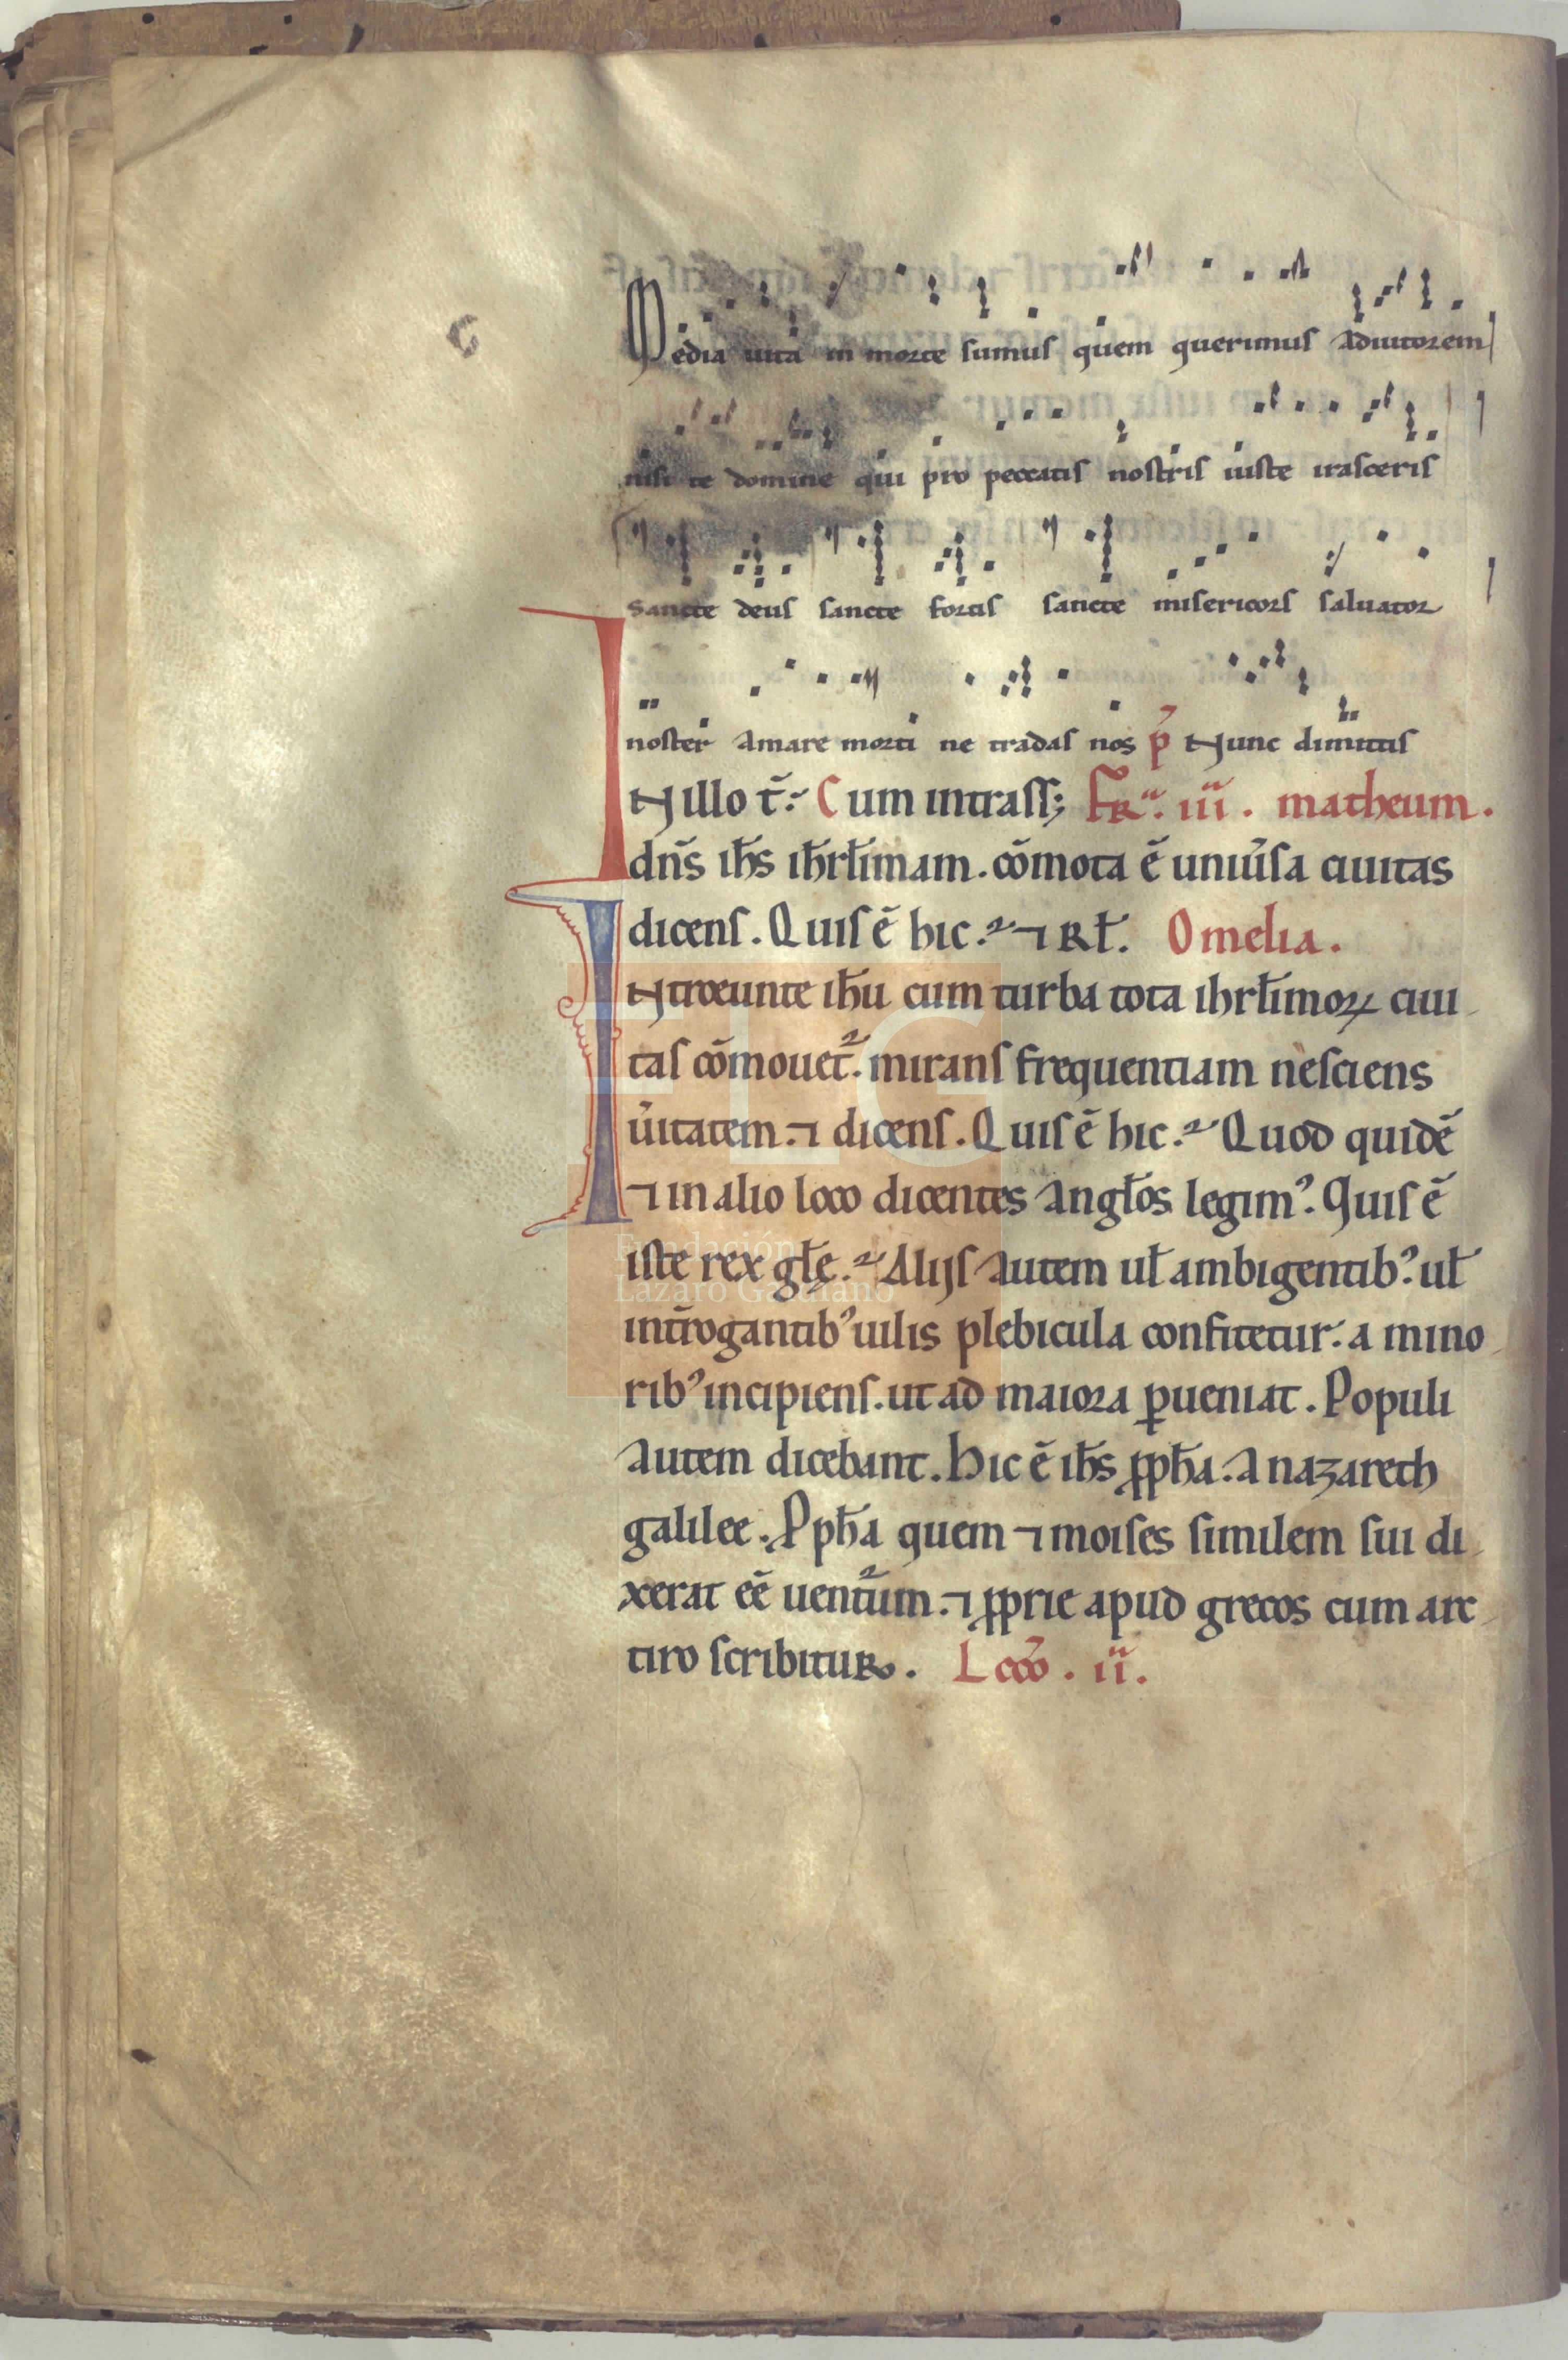 Media uita in morte sumus quem querimus adiutorem
nisi te domine qui pro peccatis nostris iuste irasceris
Sancte deus sancte fortis sancte misericors saluator
noster amare morti ne tradas nos p̄ Nunc dimittis
IN illo t̄. Cum intrass; FR̄ª. iii. matheum.
dn̄s ih̄s ih̄rłimam. cōmota ē uniūsa ciuitas
dicens. Quis ē hic. ⁊ Rł. Omelia.
INtroeunte ih̄u cum turba tota ihrłimoꝝ ciui
tas cōmouet̄. mirans frequentiam nesciens
ūitatem. ⁊ dicens. Quis ē hic. Quod quidē
⁊ in alio loco dicentes angłos legim᾽. Quis ē
iste rex głę. Alijs autem uł ambigentib᾽. uł
int̄rogantib᾽ uilis plebicula confitetur. a mino
rib᾽ incipiens. ut ad maiora ꝑueniat. Populi
autem dicebant. Hic ē ih̄s ꝓph̄a. A nazareth
galilee. Ꝓph̄a quem ⁊ moises similem sui di
xerat eē uentūm. ⁊ ꝓprie apud grecos cum arc
tiro scribitur. Lcc̄o. ii.
FLG
Fundación
Lázaro Galdiano